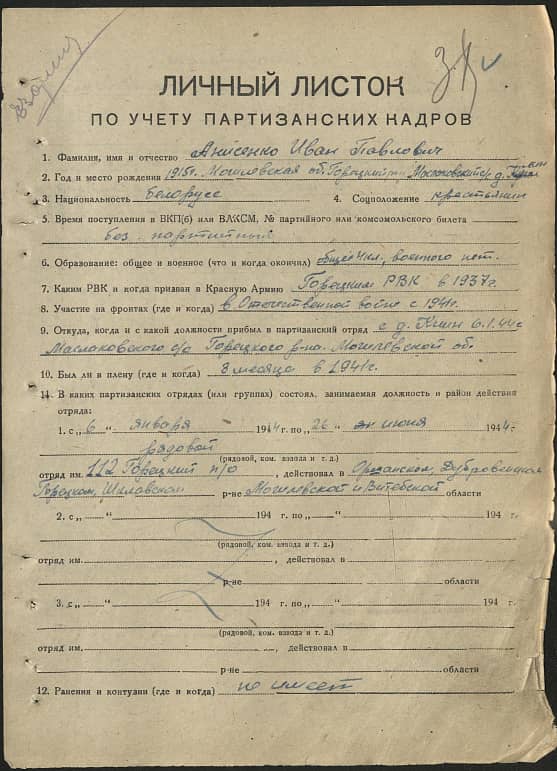 ЛИЧНЫЙ ЛИСТОК
ПО УЧЕТУ ПАРТИЗАНСКИХ КАДРОВ
1. Фамилия, имя и отчество Анисенко Иван Павлович
2. Год и место рождения 1915г. Могилевская об. Горецкий Маслаковский с/с д.
3. Национальность белорусс 4. Соцположение крестьянин
5. Время поступления в ВКП(б) или ВЛКСМ, № партийного или комсомольского билета
без партийный
6. Образование: общее и военное (что и когда окончил) общее 4 кл., военного нет.
7. Каким РВК и когда призван в Красную Армию Горецким РВК в 1937г.
8. Участие на фронтах (где и когда) в Отечественной войне с 1941г.
9. Откуда, когда и с какой должности прибыл в партизанский отряд с д. 6.1.44г
Маслаковского с/с Горецкого р-на Могилевской об.
10. Был ли в плену (где и когда) 3 месяца в 1941г.
11. В каких партизанских отрядах (или группах) состоял, занимаемая должность и район действия
отряда:
1. с „ 6 “ января 1944 г. по „ 26 “ июня 1944 г.
рядовой
(рядовой, ком. взвода и т. д.)
отряд им. 112 Горецкий п/о , действовал в Оршанском, Дубровенском
Горецком, Шкловском р-не Могилевской и Витебской области
2. с „ “ 194 г. по „ “ 194 г.
(рядовой, ком. взвода и т. д.)
отряд им. , действовал в
р-не области
3. с „ “ 194 г. по „ “ 194 г.
(рядовой, ком. взвода и т. д.)
отряд им. , действовал в
р-не области
12. Ранения и контузии (где и когда) не имеет